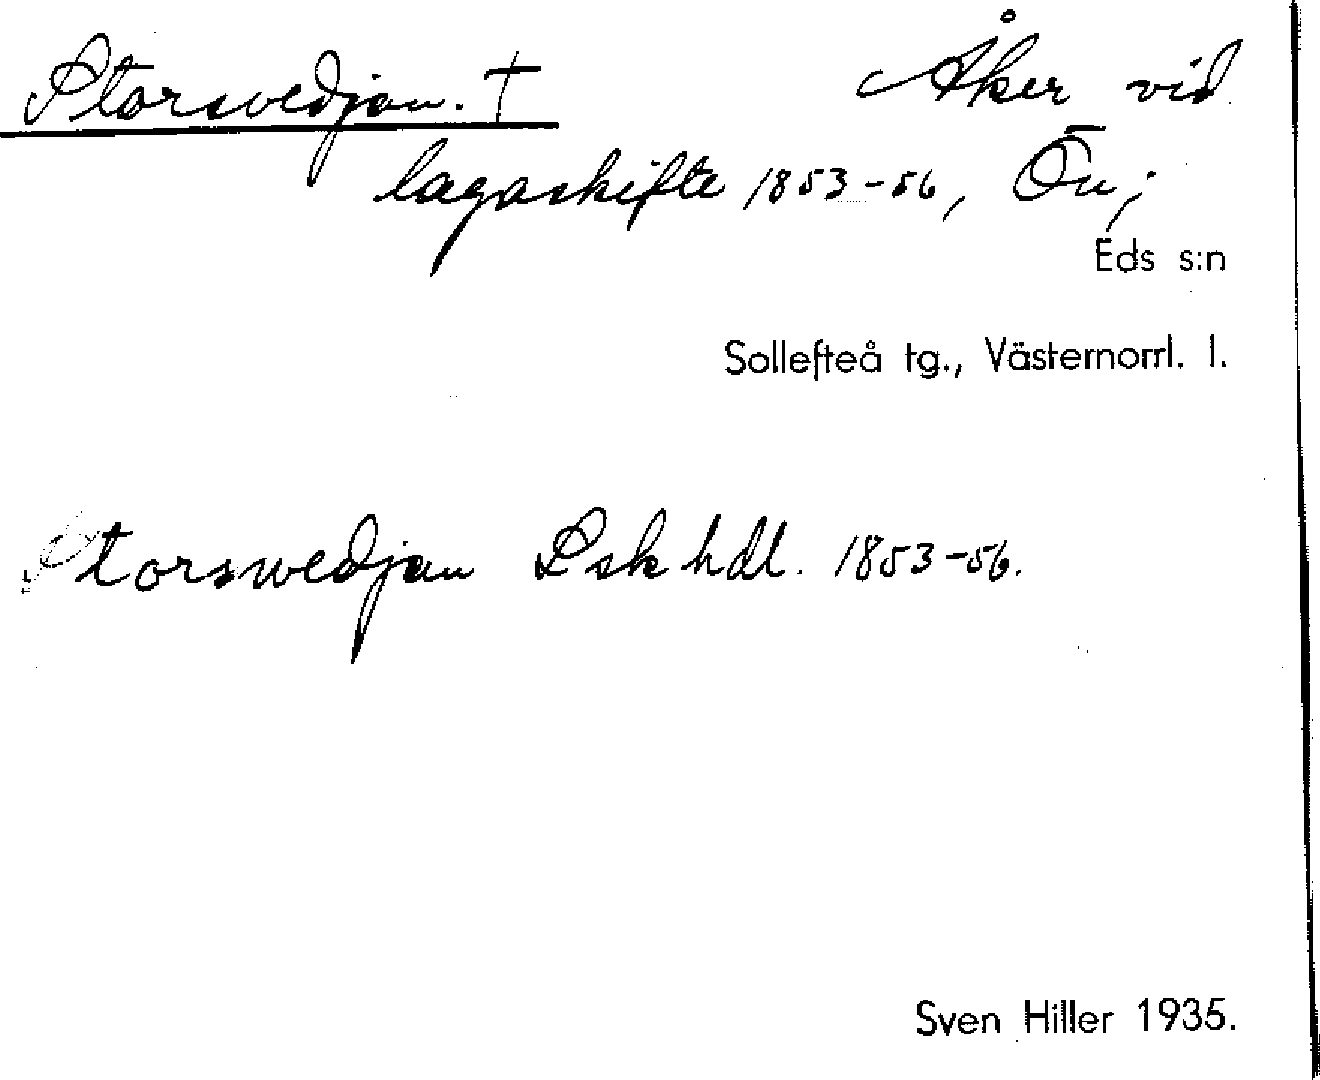 Storsvedjan. † Åker vid
lagaskifte 1853-56, Ön;
Eds s:n
Sollefteå tg., Västernorrl. l.
Storswedjan Lsk hdl. 1853-56.
Sven Hiller 1935.